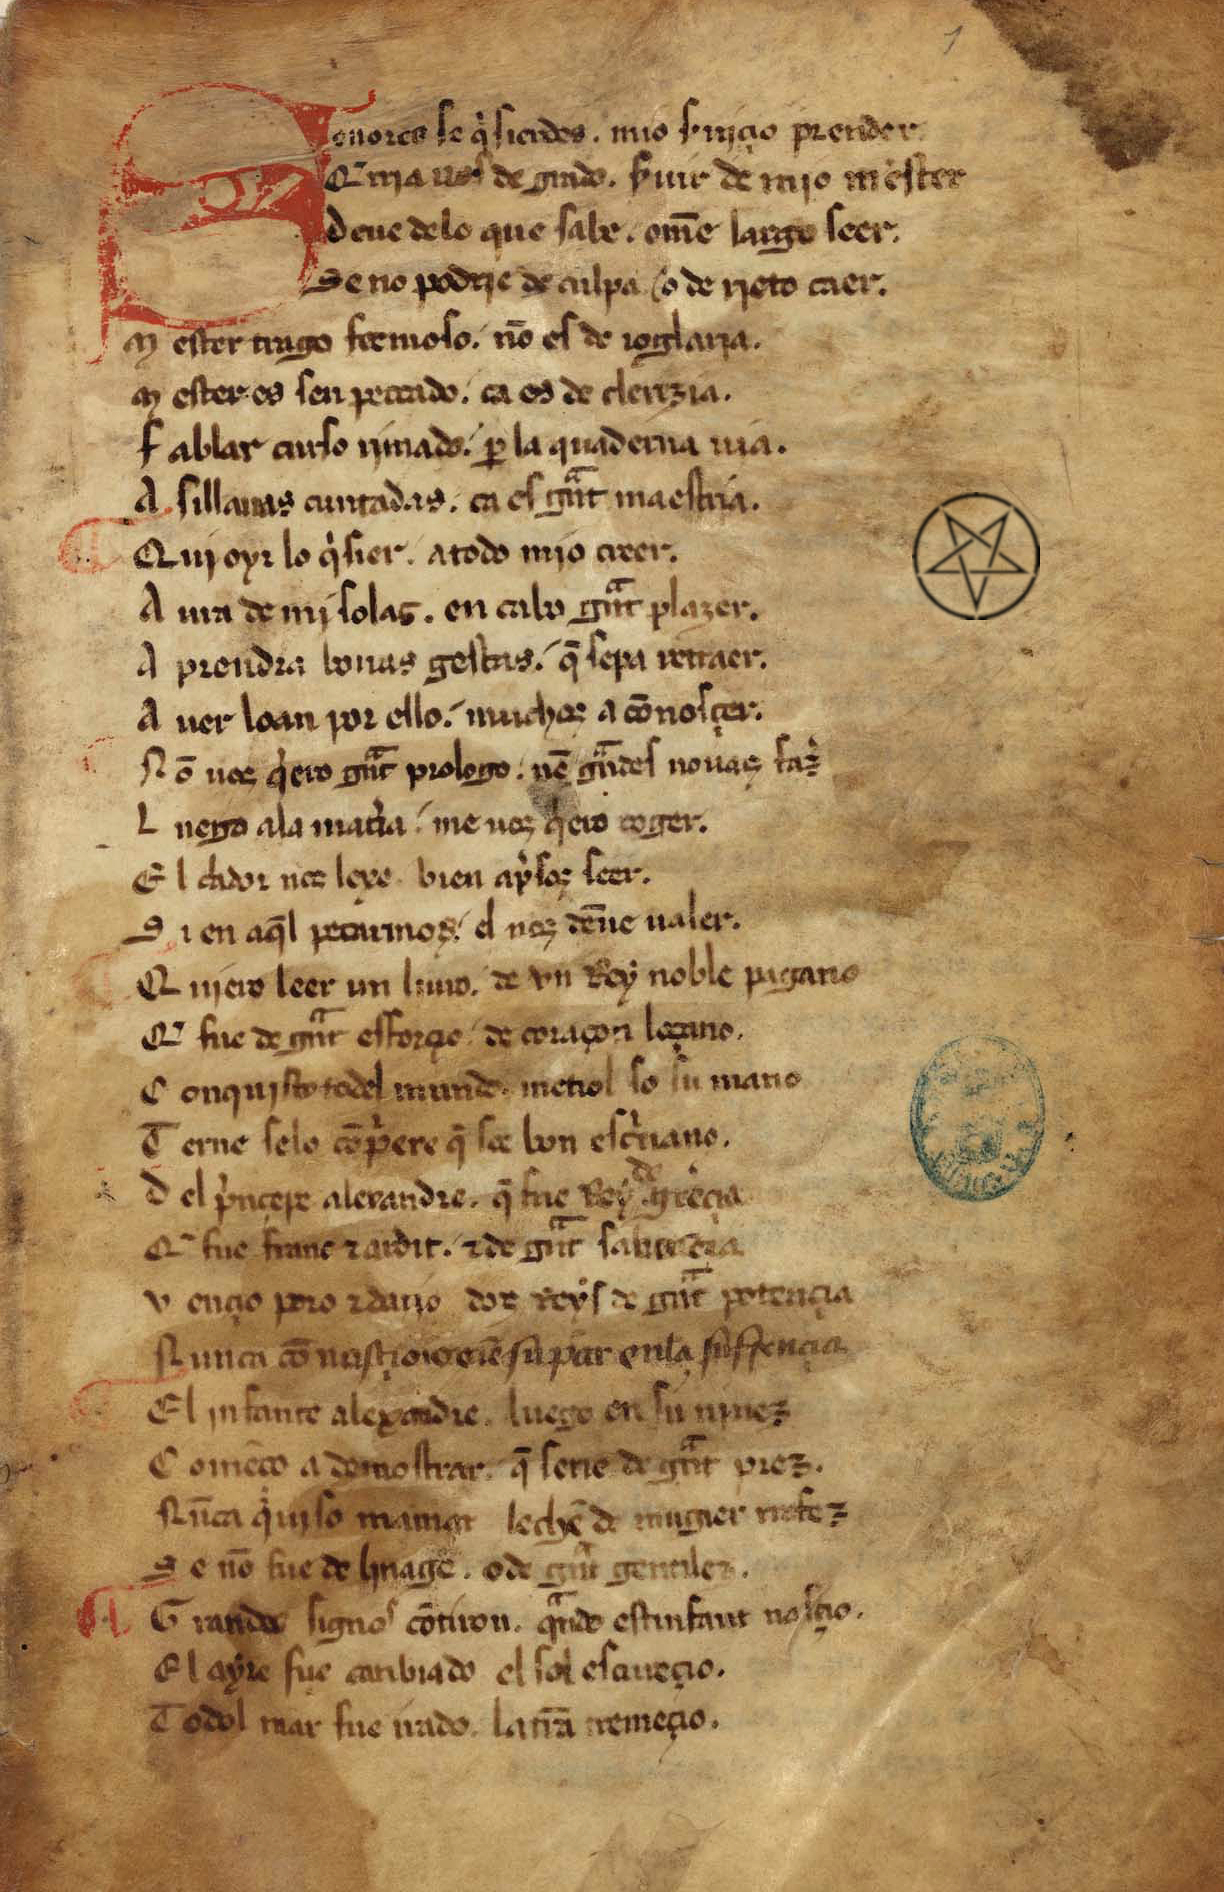 1
Senores se q̇sieredes . mio s̃uiçio prender
Q̃rria uos de grado . s̃uir de mijo mester
Deue delo que sabe . om̃e largo seer.
Se no podrie de culpa / o de rieto caer.
M ester trago fermoso. no᷄ es de ioglaria.
M ester es sen peccado . ca es de clerezia.
F ablar curso rimado . ꝑ la quaderna uia.
A sillauas cuntadas . ca es gr̃ant maestria.
Qui oyr lo q̇sier . a todo mio creer.
A ura de mj solaz . en cabo gr̃ant plazer.
A prendra bonas gestas . q̃ sepa retraer.
A uer loan por ello . muchos a co᷄nosçer.
N o᷄ uos q̇ero gr̃ant prologo . ne᷄ gr̃andes nouas faz̉
L uego ala mat̉ia . me uos q̇ero coger.
E l c̃ador nos lexe bien ap̉sos seer.
S i en aq̃l pecarmos . el nos den̄e ualer.
Q uiero leer un liuro . de vn Rey noble pagano
Q̃ fue de gr̃ant esforçio de coraçon loçano.
C onquisto todel mundo . metiol so su mano
T erne selo co᷄p̉ere q̃ soe bon esc̉uano.
D el p̉nçepe alexandre . q̃ fue Rey de greçia
Q̃ fue franc ⁊ ardit . ⁊ de gr̃ant sabiençia
V ençio poro ⁊ dario dos Reys de gr̃ant potençia
N unca co᷄ su par en la suffrençia
El infante alexandre . luego en su ninez
C ome᷄ço a demostrar . q̃ serie de gr̃ant prez .
Nu᷄ca q̇so mamar leche de mugier rafez
S e no᷄ fue de linage . o de gr̃ant gentilez .
G randes signos co᷄tiron . q̃ndo est infant nasçio .
El ayre fue cambiado el sol escureçio .
T odol mar fue irado . la tr̃ra tremeçio .